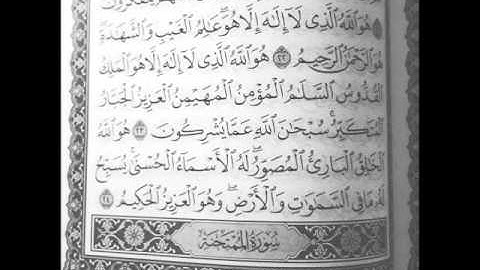 هُوَ ٱللَّهُ ٱلَّذِى لَآ إِلَـٰهَ إِلَّا هُوَ ۖ عَـٰلِمُ ٱلْغَيْبِ وَٱلشَّهَـٰدَةِ ۖ
هُوَ ٱلرَّحْمَـٰنُ ٱلرَّحِيمُ ٢٢ هُوَ ٱللَّهُ ٱلَّذِى لَآ إِلَـٰهَ إِلَّا هُوَ ٱلْمَلِكُ
ٱلْقُدُّوسُ ٱلسَّلَـٰمُ ٱلْمُؤْمِنُ ٱلْمُهَيْمِنُ ٱلْعَزِيزُ ٱلْجَبَّارُ
ٱلْمُتَكَبِّرُ ۚ سُبْحَـٰنَ ٱللَّهِ عَمَّا يُشْرِكُونَ ٢٣ هُوَ ٱللَّهُ
ٱلْخَـٰلِقُ ٱلْبَارِئُ ٱلْمُصَوِّرُ ۖ لَهُ ٱلْأَسْمَآءُ ٱلْحُسْنَىٰ ۚ يُسَبِّحُ
لَهُۥ مَا فِى ٱلسَّمَـٰوَٰتِ وَٱلْأَرْضِ ۖ وَهُوَ ٱلْعَزِيزُ ٱلْحَكِيمُ ٢٤
سُورَةُ ٱلْمُمْتَحَنَةِ